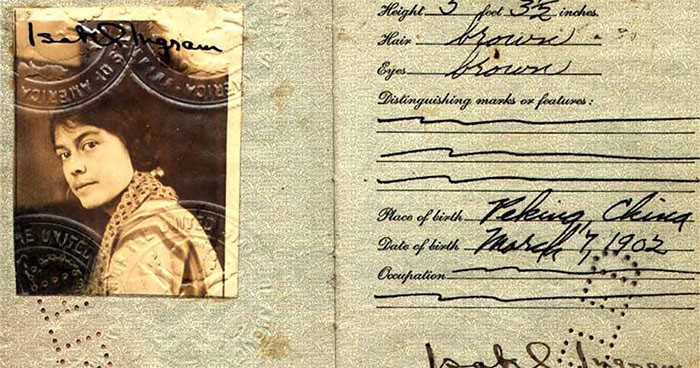 Isabel Ingram
OF AMERICA
THE UNITED
Height 5 feet 3½ inches.
Hair brown
Eyes brown
Distinguishing marks or features:
Place of birth Peking, China
Date of birth March 7, 1902
Occupation
Isabel Ingram